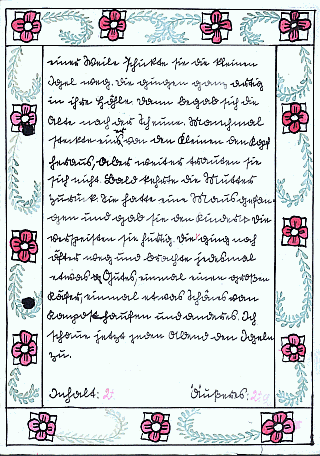 einer Weile schukte sie die kleinen
Igel weg. Die gingen ganz artig
in ihre Höhle dann begab sich die
Alte nach der Scheune. Manchmal
steckte eins von den Kleinen den Kopf
heraus, aber weiter trauten sie
sich nicht. Bald kehrte die Mutter
zurück. Sie hatte eine Maus gefan-
gen und gab sie den Kindern die
verspeisten sie hurtig. Sie ging noch
öfter weg und brachte jedesmal
etwas Gutes, einmal einen großen
Käfer, einmal etwas Schönes vom
Komposthaufen und anderes. Ich
schaue jetzt jeden Abend den Igeln
zu.
Inhalt: 2+
Äußeres: 2+